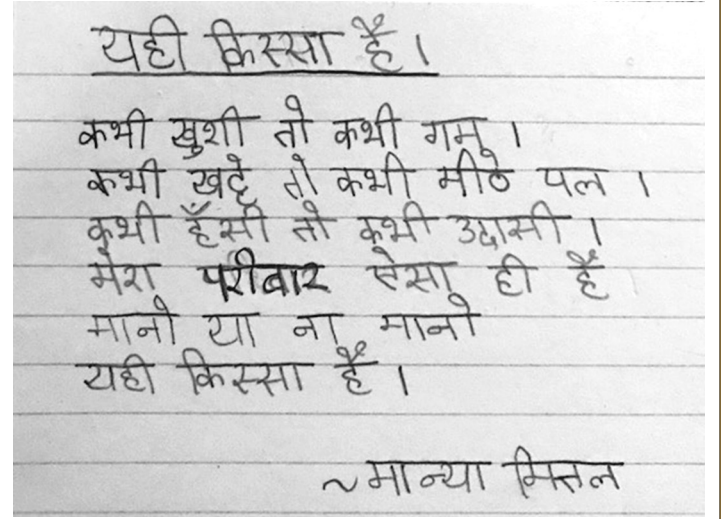 यही किस्सा है।
कभी खुशी तो कभी गम ।
कभी खट्टे तो कभी मीठे पल ।
कभी हँसी तो कभी उदासी ।
मेरा परीवार ऐसा ही है
मानो या ना मानो
यही किस्सा है ।
~मान्या मित्तल